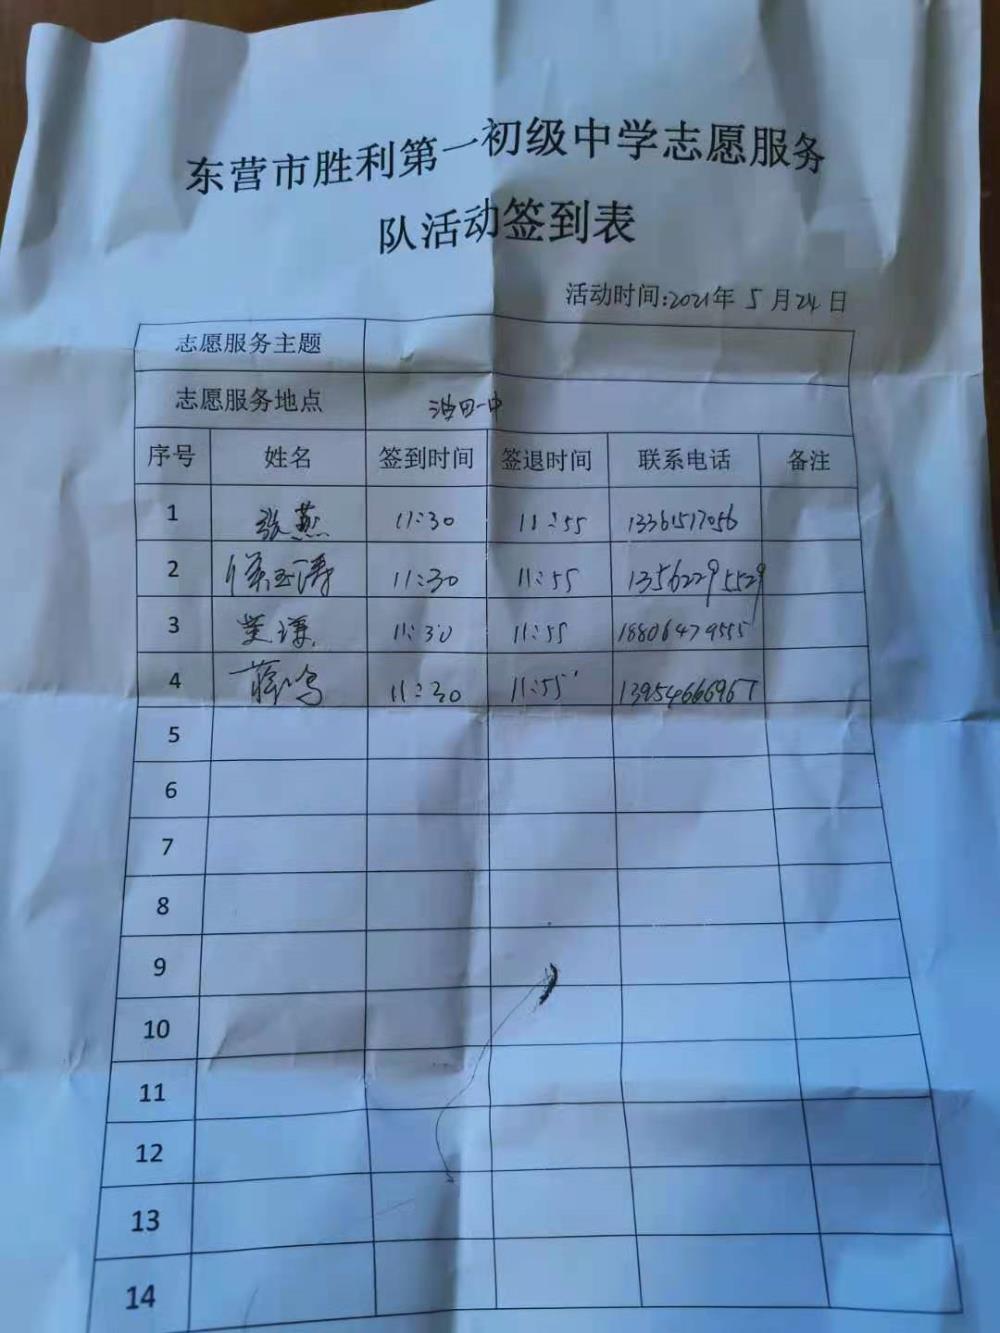 东营市胜利第一初级中学志愿服务
队活动签到表
活动时间:2021年 5 月 24 日
志愿服务主题
志愿服务地点 油田一中
序号 姓名 签到时间 签退时间 联系电话 备注
1 张燕 11:30 11:55 13361517056
2 11:30 11:55 13562295529
3 11:30 11:55 18806479555
4 11:30 11:55 13954666967
5
6
7
8
9
10
11
12
13
14